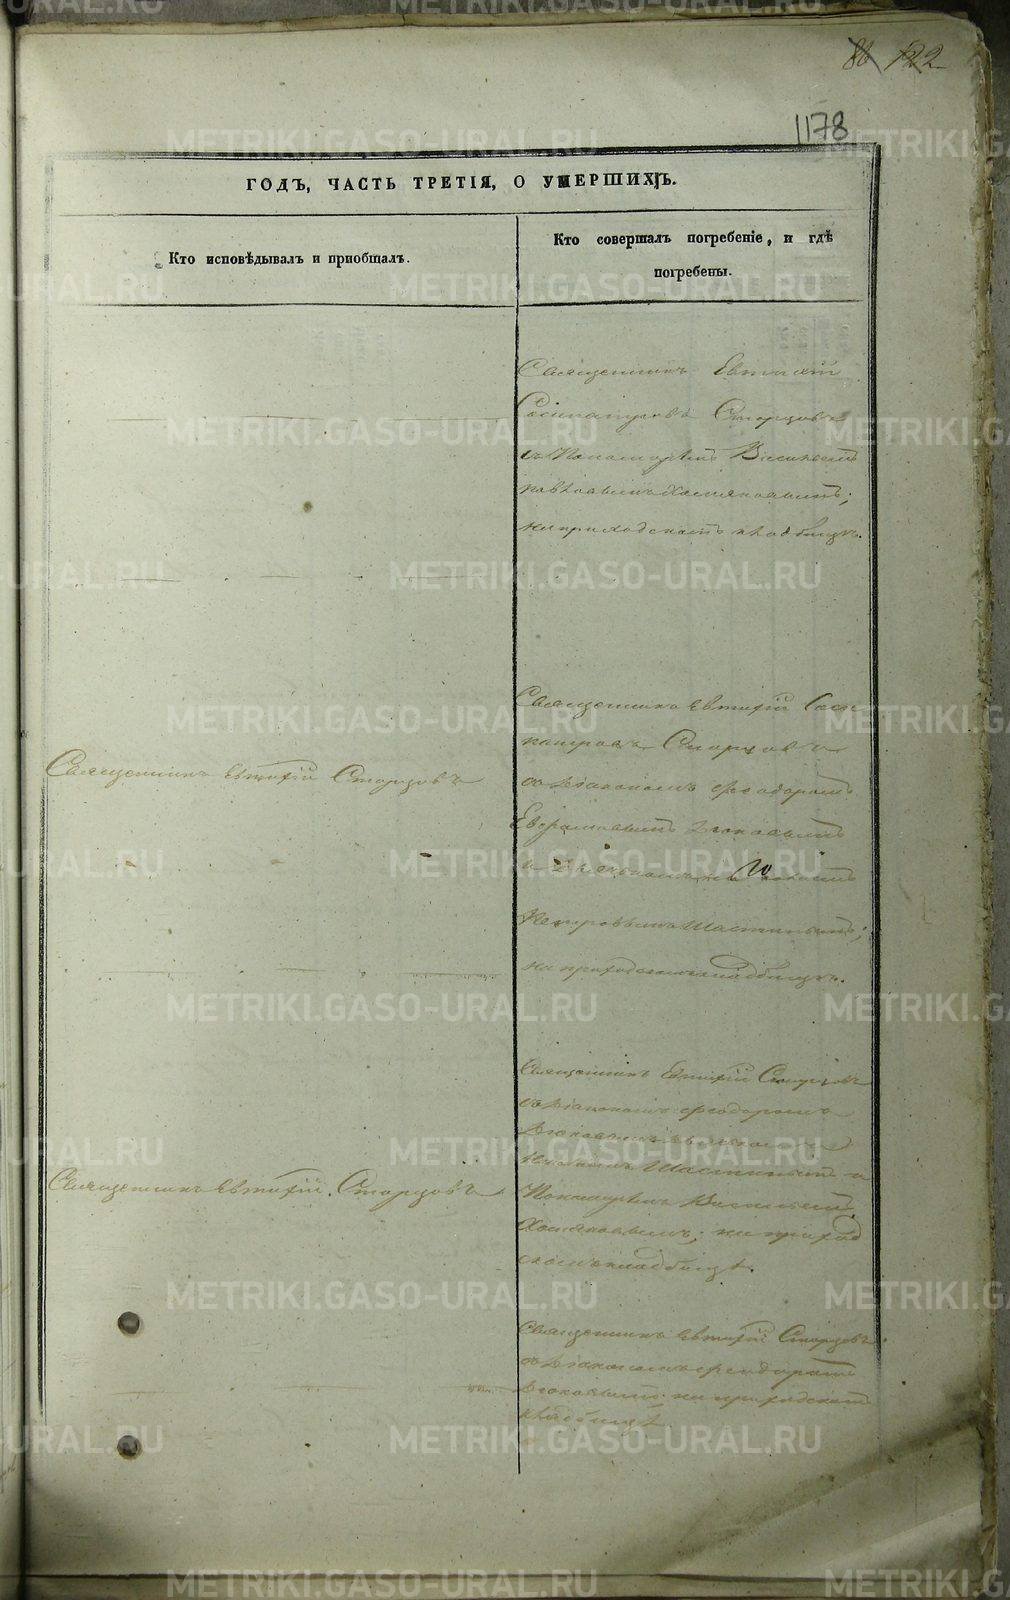 86 122
1178
ГОДЪ, ЧАСТЬ ТРЕТІЯ, О УМЕРШИХЪ.
Кто исповѣдывалъ и пріобщалъ.
Кто совершалъ погребеніе, и гдѣ
погребены.
Священникъ Евтихій
Сосипатровъ Старцовъ
съ Пономаремъ Василіемъ
Хомяковымъ;
на приходскомъ кладбищѣ.
Священникъ Евтихій Старцовъ
Священникъ Евтихій Соси-
патровъ Старцовъ
съ Діакономъ Феодоромъ
и
Петровымъ Шастинымъ;
на приходскомъ кладбищѣ.
Священникъ Евтихій Старцовъ
Священникъ Евтихій Старцовъ
съ Діакономъ Феодоромъ
Шастинымъ и
Пономаремъ Василіемъ
Хомяковымъ; на приход
скомъ кладбищѣ.
Священникъ Евтихій Старцовъ
съ Діакономъ Феодоромъ
на приходскомъ
кладбищѣ
METRIKI.GASO-URAL.RU